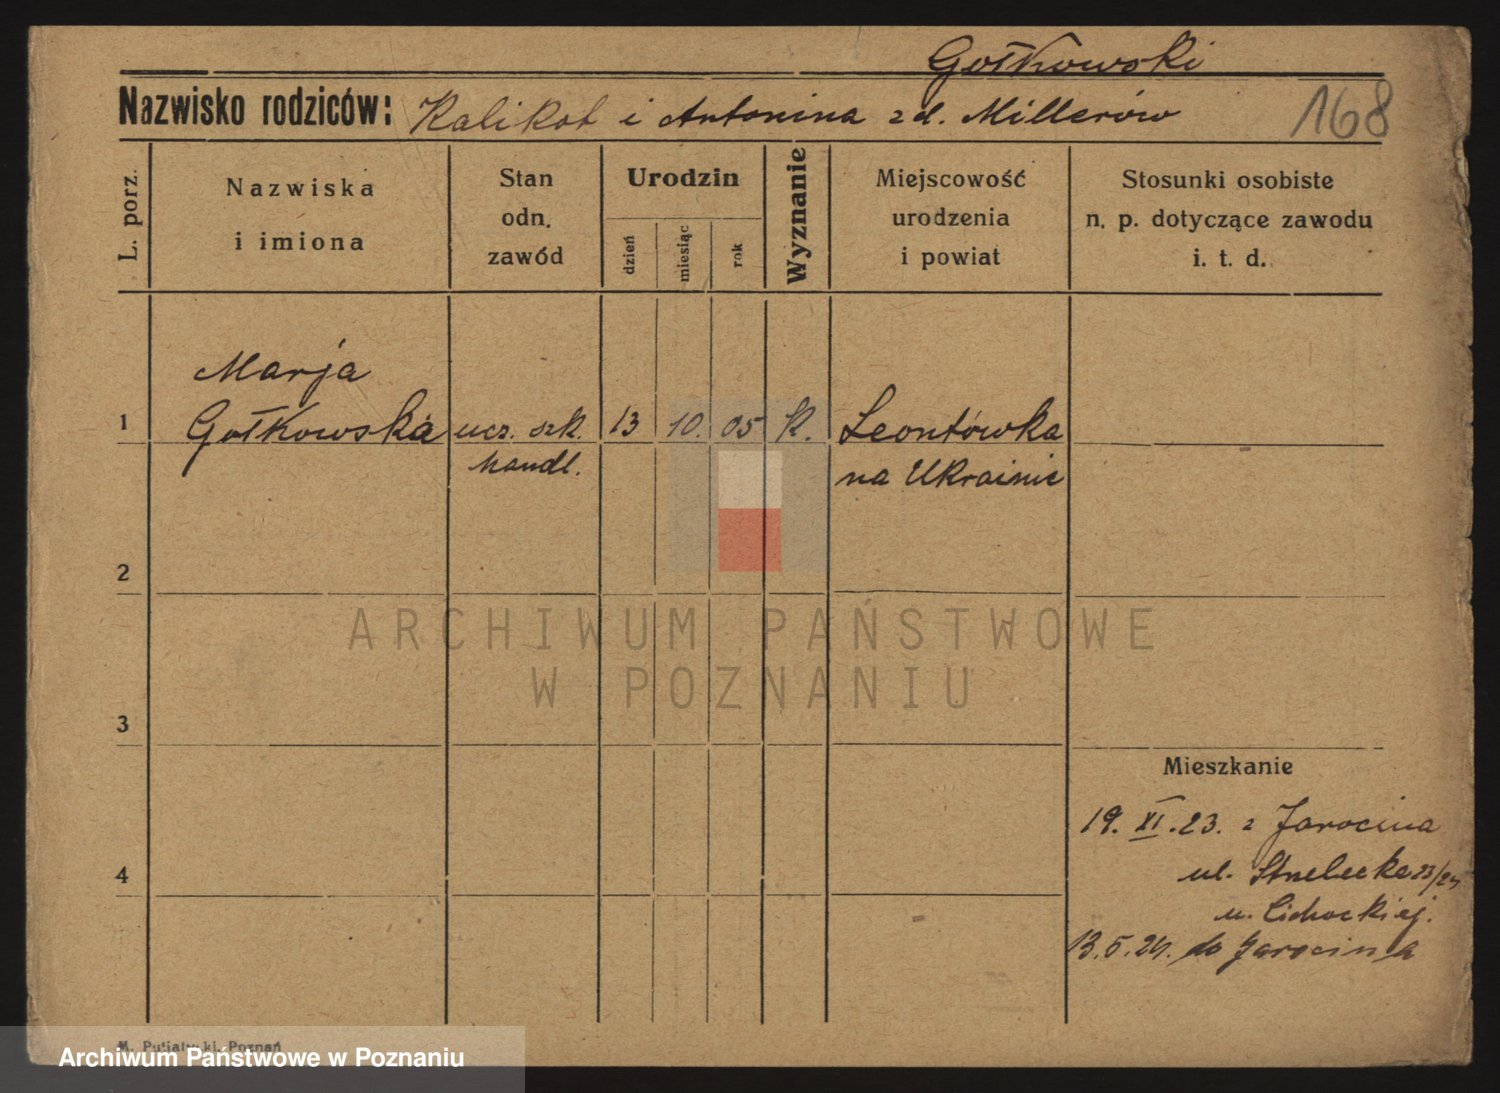 Gołkowski
Nazwisko rodziców: Kalikst i Antonina z d. Millerów
168
L. porz.
Nazwiska
i imiona
Stan
odn.
zawód
Urodzin
dzień
miesiąc
rok
Wyznanie
Miejscowość
urodzenia
i powiat
Stosunki osobiste
n. p. dotyczące zawodu
i. t. d.
Marja
1 Gołkowska ucz. szk. 13 10. 05 k. Leontówka
handl. na Ukrainie
2
ARCHIWUM PAŃSTWOWE
W POZNANIU
3
Mieszkanie
19. XI. 23. z Jarocina
4
ul. Strzelecka 23/24
u. Cichockiej.
13. 5. 24. do Jarocina
M. Putiatycki, Poznań
Archiwum Państwowe w Poznaniu